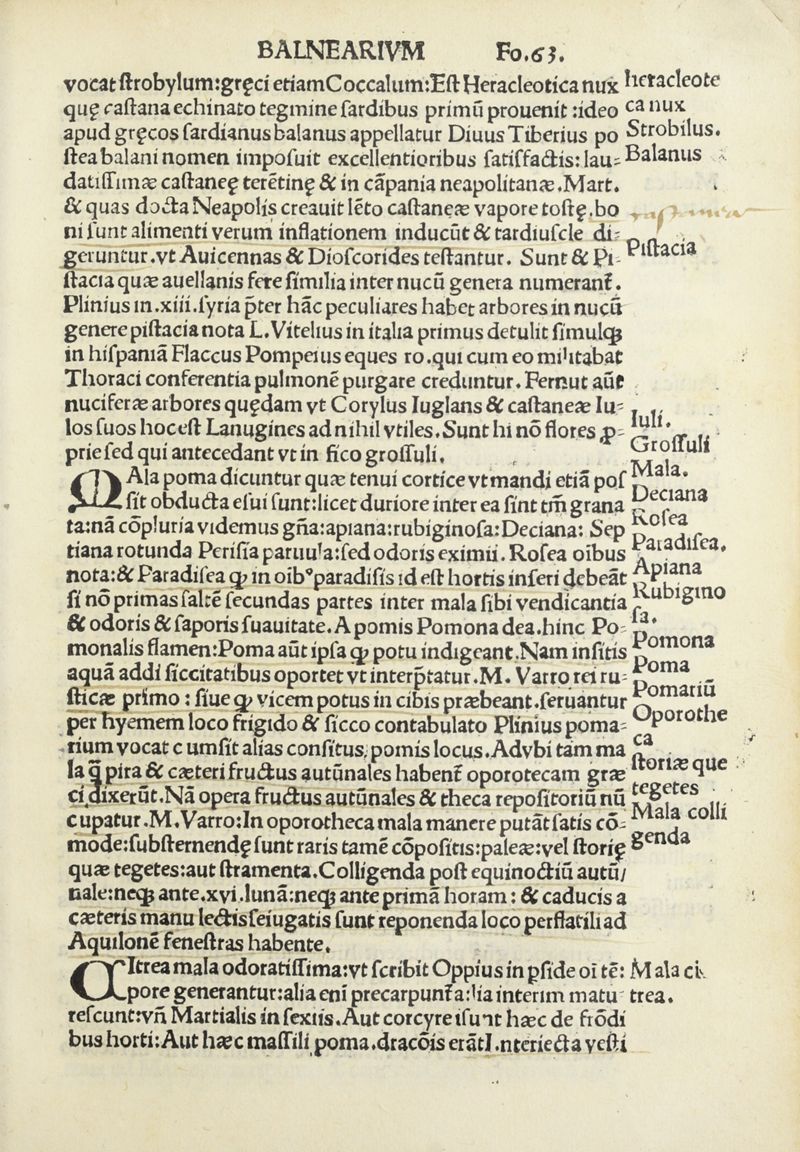 BALNEARIVM Fo.63.
vocat ſtrobylum:gręci etiam Coccalum:Eſt Heracleotica nux
quę caſtana echinato tegmine ſardibus primū prouenit :ideo
apud gręcos ſardianus balanus appellatur Diuus Tiberius po
ſtea balani nomen impoſuit excellentioribus ſatiſfactis:lau-
datiſſimæ caſtaneę terētinę & in cāpania neapolitanæ.Mart.
& quas docta Neapolis creauit lēto caſtaneæ vapore toſtę.bo
ni ſunt alimenti verum inflationem inducūt & tardiuſcle di-
geruntur.vt Auicennas & Dioſcorides teſtantur. Sunt & Pi-
ſtacia quæ auellanis fere ſimilia inter nucū genera numerant̄.
Plinius in.xiii.ſyria p̄ter hāc peculiares habet arbores in nucū
genere piſtacia nota L.Vitelius in italia primus detulit ſimulqꝫ
in hiſpaniā Flaccus Pompeius eques ro.qui cum eo militabat
Thoraci conferentia pulmonē purgare creduntur. Ferūt aūt
nuciferæ arbores quędam vt Corylus Iuglans & caſtaneæ Iu-
los ſuos hoc eſt Lanugines ad nihil vtiles.Sunt hi nō flores ꝓ-
prie ſed qui antecedant vt in fico groſſuli.
MAla poma dicuntur quæ tenui cortice vt mandi etiā poſ
ſit obducta eſui ſunt:licet duriore inter ea ſint tm̄ grana
ta:nā cōpluria videmus gn̄a:apiana:rubiginoſa:Deciana: Sep
tiana rotunda Periſia paruula:ſed odoris eximii. Roſea oibus
nota:& Paradiſea ꝙ in oibꝰ paradiſis id eſt hortis inſeri debeāt
ſi nō primas ſaltē ſecundas partes inter mala ſibi vendicantia
& odoris & ſaporis ſuauitate. A pomis Pomona dea.hinc Po-
monalis flamen:Poma aūt ipſa ꝙ potu indigeant.Nam inſitis
aquā addi ſiccitatibus oportet vt interp̄tatur.M. Varro rei ru-
ſticæ primo : ſiue ꝙ vicem potus in cibis præbeant.ſeruantur
per hyemem loco frigido & ſicco contabulato Plinius poma-
rium vocat c umſit alias conſitus, pomis locus.Ad vbi tam ma
la q̄ pira & cæteri fructus autūnales habent̄ oporotecam græ
ci dixerūt.Nā opera fructus autūnales & theca repoſitoriū nū
cupatur.M.Varro:In oporotheca mala manere putāt ſatis cō-
mode:ſubſternendę ſunt raris tamē cōpoſitis:paleæ:vel ſtorię
quæ tegetes:aut ſtramenta.Colligenda poſt equinoctiū autū/
nale:neqꝫ ante.xvi.lunā:neqꝫ ante primā horam : & caducis a
cæteris manu lectis ſeiugatis ſunt reponenda loco perflatili ad
Aquilonē feneſtras habente.
CItrea mala odoratiſſima:vt ſcribit Oppius in pſide oī tē:
pore generantur:alia enī precarpunt̄ a:lia interim matu-
reſcunt:vn̄ Martialis in ſextis.Aut corcyrei ſunt hæc de frōdi
bus horti:Aut hæc maſſili poma.dracōis erāt I.nteriecta veſti
heracleote
ca nux
Strobilus.
Balanus
Piſtacia
Iuli.
Groſſuli
Mala.
Deciana
Roſea
Paradiſea.
Apiana
Rubigino
ſa.
Pomona
Poma
Pomariū
Oporothe
ca
ſtoriæ que
tegetes
Mala colli
genda
Mala ci
trea.